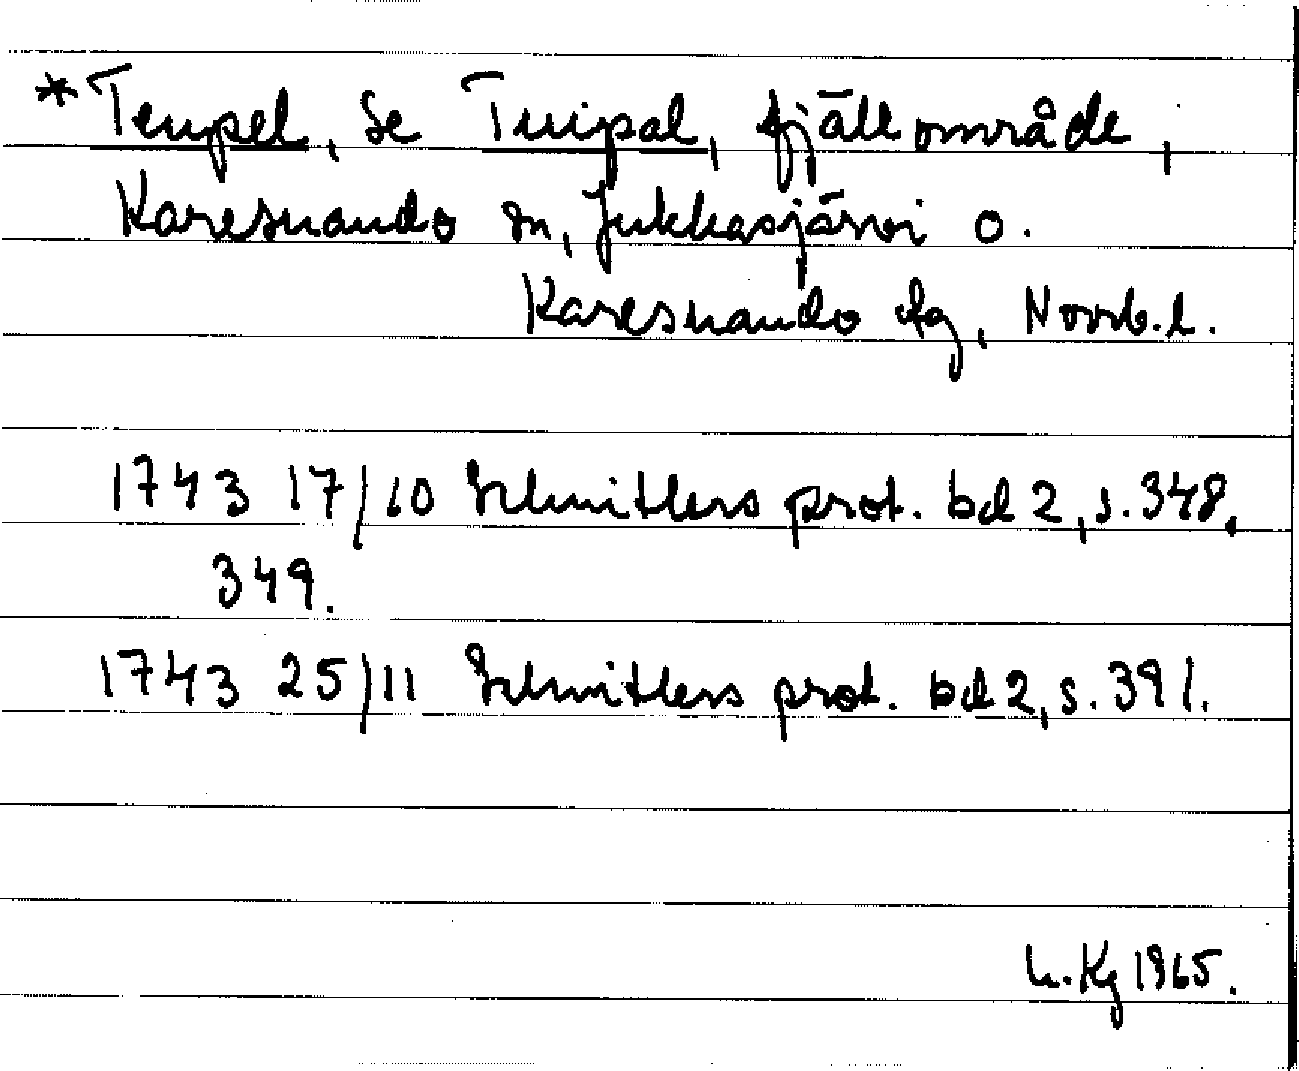 *Teupel, se Tuipal, fjällområde,
Karesuando sn, Jukkasjärvi o.
Karesuando dg, Norrb. l.
1743 17/10 Schnitlers prot. bd 2, s. 348,
349.
1743 25/11 Schnitlers prot. bd 2, s. 391.
Kg 1965.